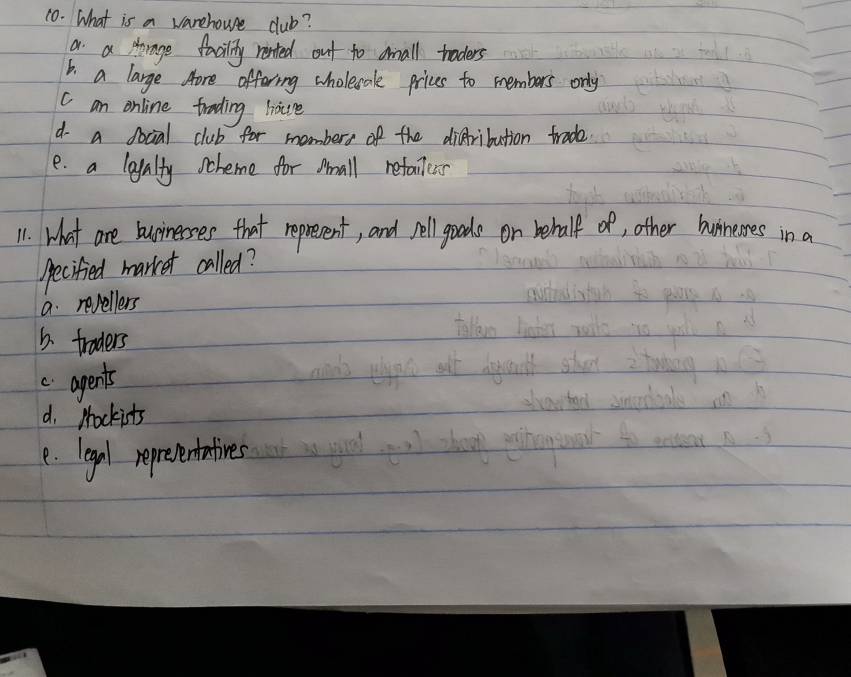 10. What is a warehouse club?
a. a storage facility rented out to small traders
b. a large store offering wholesale prices to members only
c an online trading house
d. a social club for members of the distribution trade
e. a loyalty scheme for small retailers
11. What are businesses that represent, and sell goods on behalf of, other businesses in a
specified market called?
a. resellers
b. traders
c. agents
d. stockists
e. legal representatives